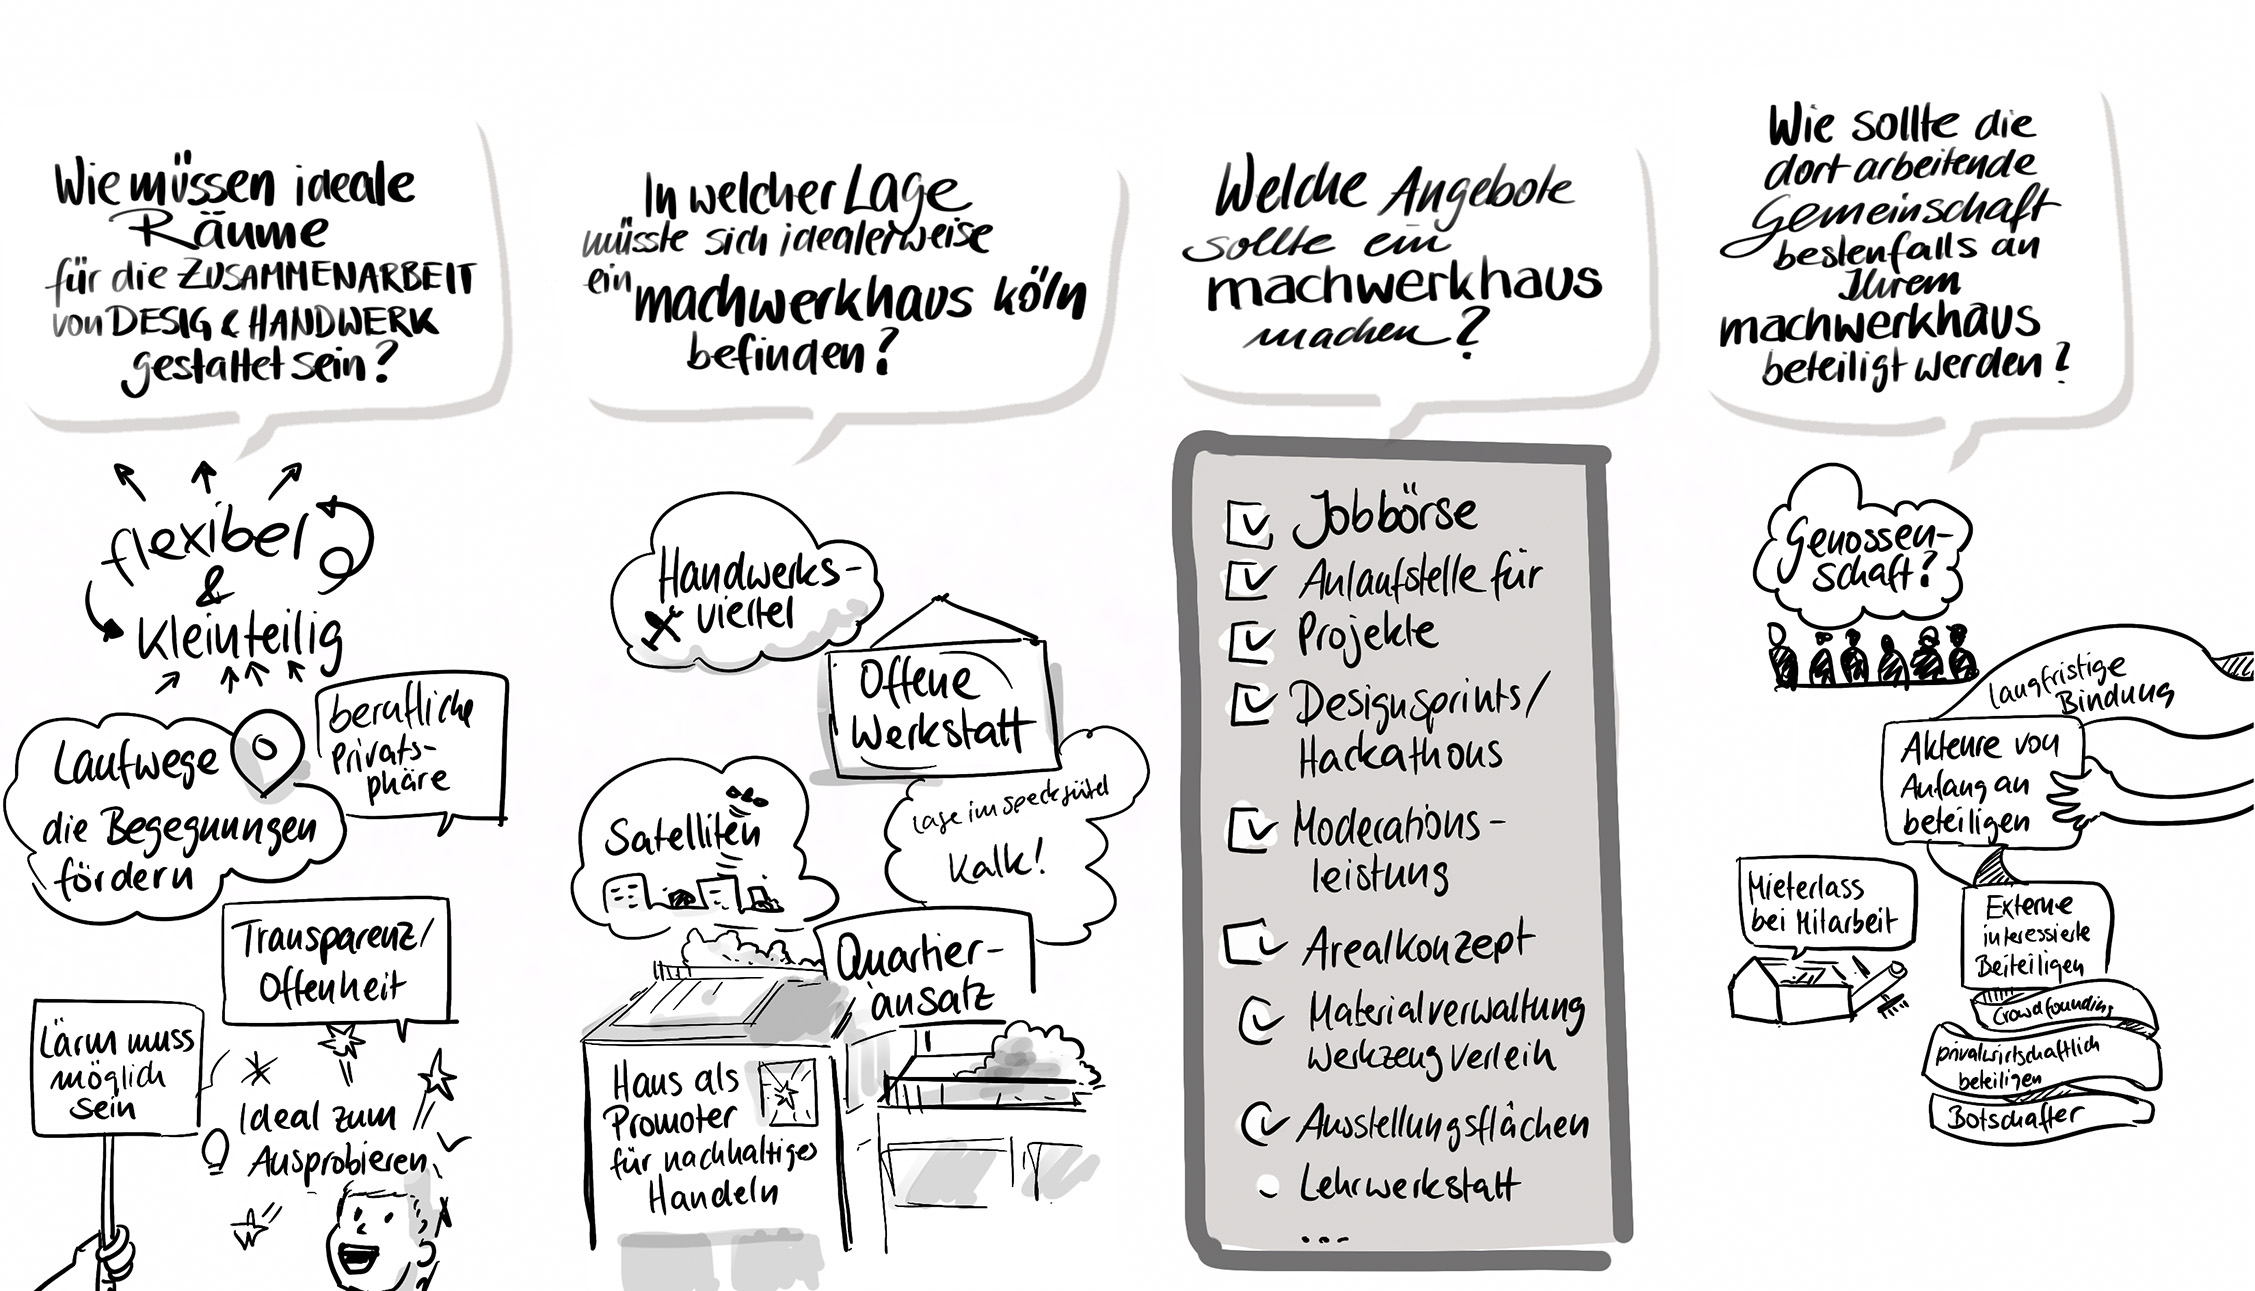 Wie müssen ideale
Räume
für die ZUSAMMENARBEIT
von DESIG & HANDWERK
gestaltet sein?
flexibel
&
kleinteilig
berufliche
Privats-
phäre
Laufwege
die Begegnungen
fördern
Transparenz/
Offenheit
Lärm muss
möglich
sein
Ideal zum
Ausprobieren
In welcher Lage
müsste sich idealerweise
ein machwerkhaus köln
befinden?
Handwerks-
viertel
Offene
Werkstatt
Satelliten
Lage im Speckgürtel
Kalk!
Quartier-
ansatz
Haus als
Promoter
für nachhaltiges
Handeln
Welche Angebote
sollte ein
machwerkhaus
machen?
Jobbörse
Anlaufstelle für
Projekte
Designsprints/
Hackathons
Moderations-
leistung
Arealkonzept
Materialverwaltung
Werkzeug Verleih
Ausstellungsflächen
Lehrwerkstatt
...
Wie sollte die
dort arbeitende
Gemeinschaft
bestenfalls an
Ihrem
machwerkhaus
beteiligt werden?
Genossen-
schaft?
langfristige
Bindung
Akteure von
Anfang an
beteiligen
Mieterlass
bei Mitarbeit
Externe
interessierte
Beiteiligen
Crowdfounding
privatwirtschaftlich
beteiligen
Botschafter